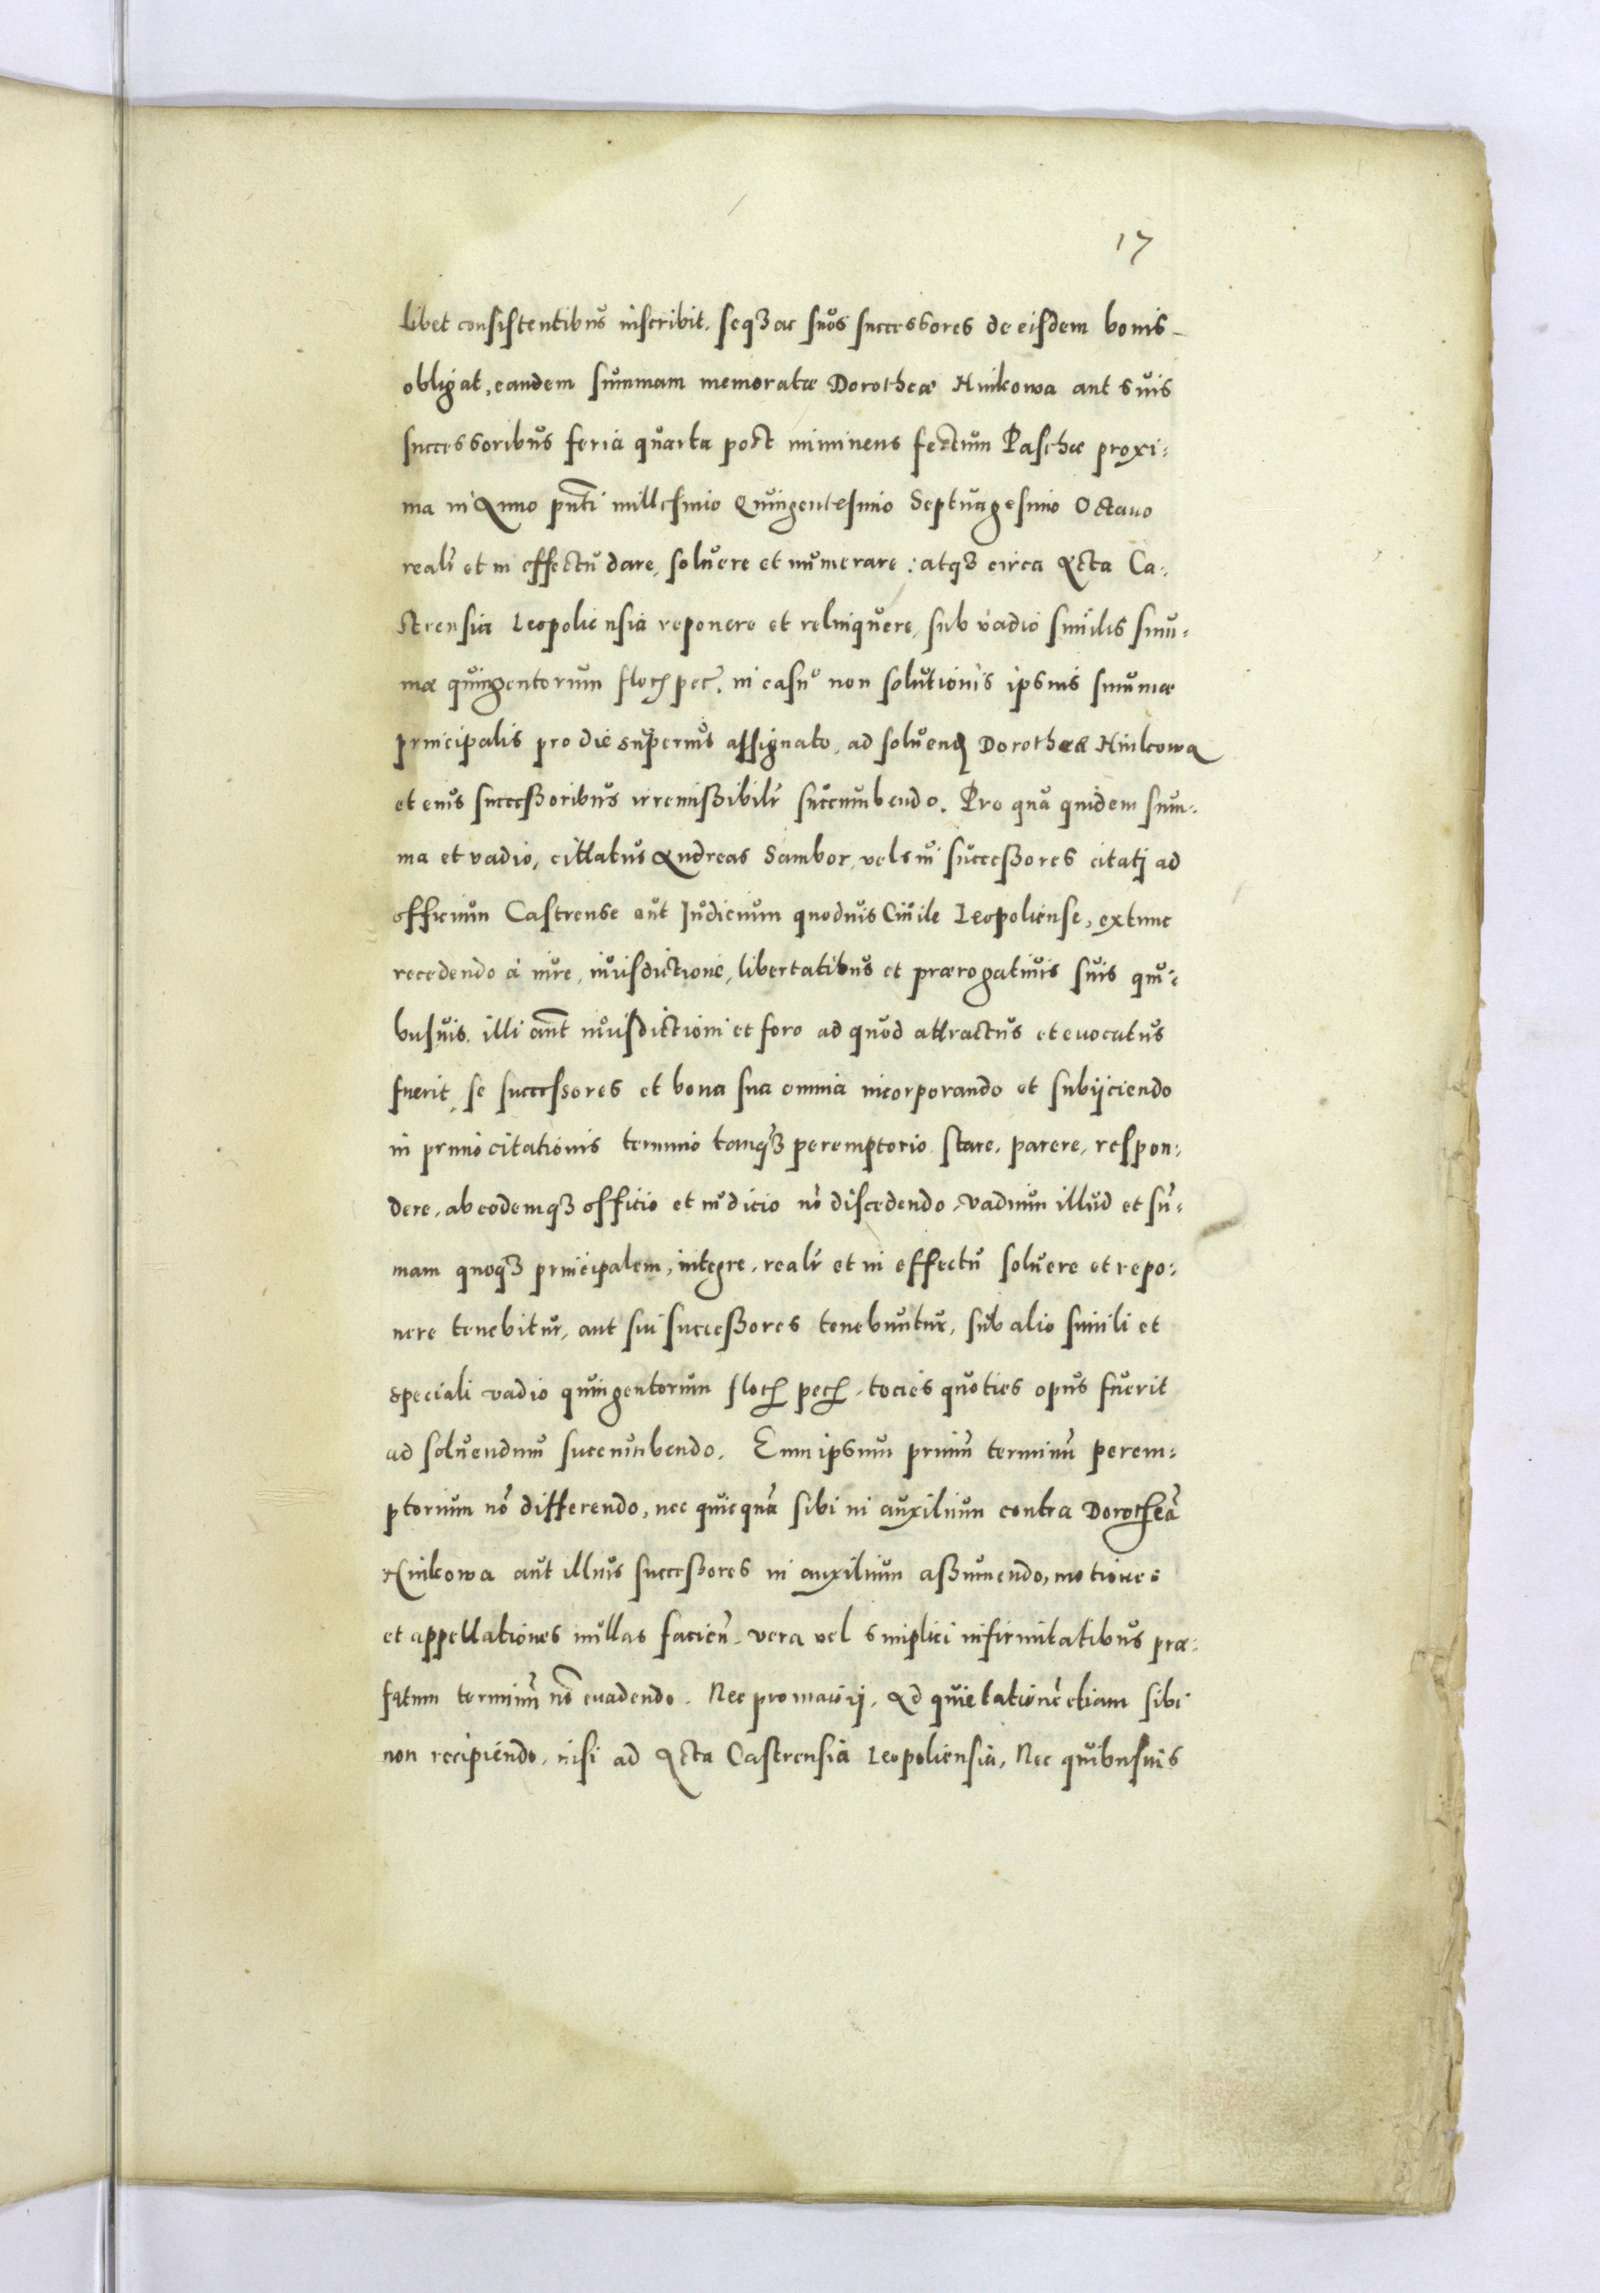 17
libet consistentibus inscribit, seqȝ ac suos successores de eisdem bonis
obligat, eandem summam memoratæ Dorotheæ Hinkowa aut suis
successoribus feria quarta post imminens festum Paschæ proxi:
ma in Anno pñti millesimo Quingentesimo Septuagesimo Octauo
realr et in effectu dare, soluere et numerare: atqȝ circa Acta Ca:
strensia Leopoliensia reponere et relinquere, sub vadio similis sum:
mæ quingentorum floꝝ pec. in casu non solutionis ipsius summæ
principalis pro die superius assignato, ad soluenꝺ Dorotheæ Hinkowa
et eius successoribus irremissibilr succumbendo. Pro qua quidem sum:
ma et vadio, cittatus Andreas Sambor, vel sui successores citatj ad
officium Castrense aut Judicium quoduis Ciuile Leopoliense, extunc
recedendo à iure, iurisdictione, libertatibus et prærogatiuis suis qui:
busuis. illi aũt iurisdictioni et foro ad quod attractus et euocatus
fuerit, se successores et bona sua omnia incorporando et subijciendo
in primo citationis termino tanqȝ peremptorio stare, parere, respon:
dere, ab eodemqȝ officio et iudicio nõ discedendo, vadium illud et sũ:
mam quoqȝ principalem, integre, realr et in effectu soluere et repo:
nere tenebitur, aut sui successores tenebuntur, sub alio simili et
speciali vadio quingentorum floꝝ pecꝝ, tocies quoties opus fuerit
ad soluendum succumbendo. Eum ipsum primũ terminũ perem:
ptorium nõ differendo, nec quicquã sibi in auxilium contra Dorotheã
Hinkowa aut illius successores in auxilium assumendo, motiones
et appellationes nullas facieñ. vera vel simplici infirmitatibus præ:
fatum terminũ nõ euadendo. Nec pro maiori, Ad quietationẽ etiam sibi
non recipiendo, nisi ad Acta Castrensia Leopoliensia, Nec quibusuis